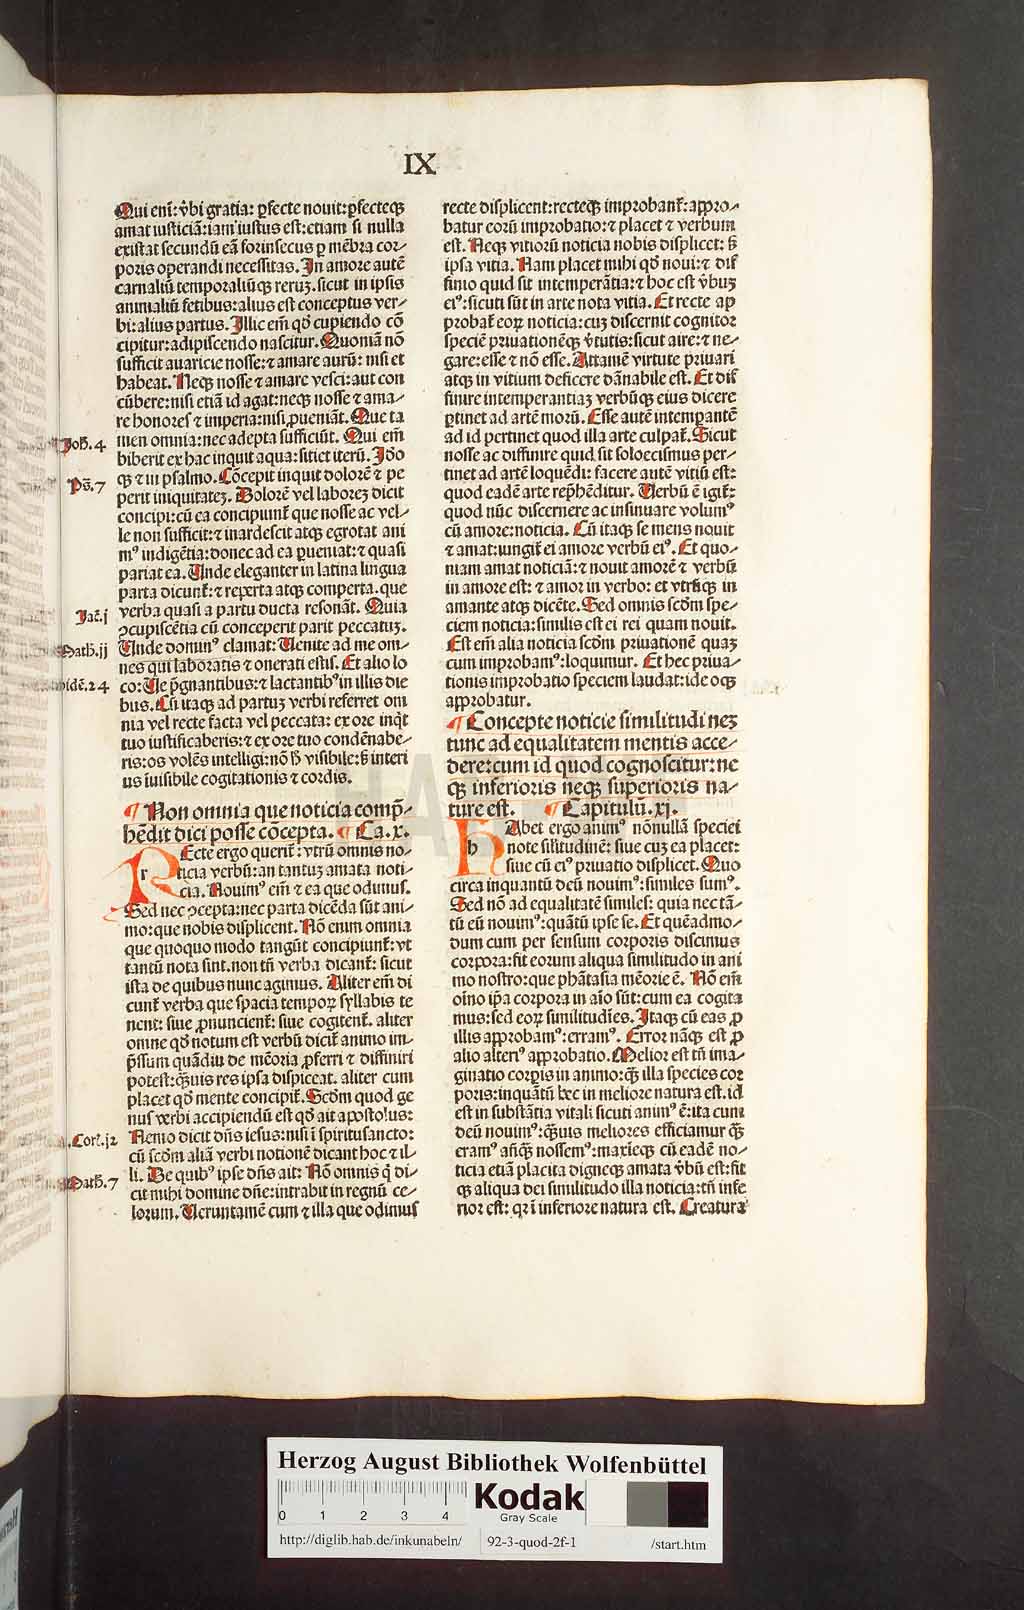 IX
Qui eni᷒: v̓bi gratia: ꝑfecte nouit: ꝑfecteqꝫ
amat iusticiā: iam iustus est: etiam si nulla
existat secundū eā forinsecus ꝑ mēbra cor⸗
poris operandi necessitas. In amore autē
carnaliū temporaliūqꝫ reruꝫ. sicut in ipsis
animaliū fetibus: alius est conceptus ver⸗
bi: alius partus. Illic em̄ qd̓ cupiendo cō
cipitur: adipiscendo nascitur. Quoniā nō
sufficit auaricie nosse: ⁊ amare aurū: nisi et
habeat. Neqꝫ nosse ⁊ amare vesci: aut con
cūbere: nisi etiā id agat: neqꝫ nosse ⁊ ama⸗
re honores ⁊ imperia: nisi ꝓueniāt. Que ta
men omnia: nec adepta sufficiūt. Qui em̄
biberit ex hac inquit aqua: sitiet iterū. Ido
qꝫ ⁊ in psalmo. Cōcepit inquit dolorē ⁊ pe
perit iniquitateꝫ. Dolorē vel laboreꝫ dicit
concipi: cū ea concipiunt᷑ que nosse ac vel⸗
le non sufficit: ⁊ inardescit atqꝫ egrotat ani
mꝰ indigētia: donec ad ea ꝑueniat: ⁊ quasi
pariat ea. Unde eleganter in latina lingua
parta dicunt᷑: ⁊ reperta atqꝫ comperta. que
verba quasi a partu ducta resonāt. Quia
ꝯcupiscētia cū conceperit parit peccatuꝫ.
Unde dominꝰ clamat: Uenite ad me om⸗
nes qui laboratis ⁊ onerati estis. Et alio lo
co: Ue p̄gnantibus: ⁊ lactantibꝰ in illis die
bus. Cū itaqꝫ ad partuꝫ verbi referret om
nia vel recte facta vel peccata: ex ore inqt̓
tuo iustificaberis: ⁊ ex ore tuo condēnabe⸗
ris: os volēs intelligi: nō h̓ visibile: s̓ interi
us iuisibile cogitationis ⁊ cordis.
¶ Non omnia que noticia comp̄⸗
hēdit dici posse cōcepta. ¶ Ca. x.
REcte ergo querit᷑: vtrū omnis no⸗
ticia verbū: an tantuꝫ amata noti⸗
cia. Nouimꝰ em̄ ⁊ ea que odimus.
Sed nec ꝯcepta: nec parta dicēda sūt ani⸗
mo: que nobis displicent. Nō enim omnia
que quoquo modo tangūt concipiunt᷑: vt
tantū nota sint. non tn̄ verba dicant᷑: sicut
ista de quibus nunc agimus. Aliter em̄ di
cunt᷑ verba que spacia tempoꝝ syllabis te
nent: siue ꝓnuncient᷑: siue cogitent᷑. aliter
omne qd̓ notum est verbū dicit᷑ animo im⸗
p̄ssum quādiu de mēoria ꝓferri ⁊ diffiniri
potest: qᷓꝫuis res ipsa displiceat. aliter cum
placet qd̓ mente concipit᷑. Scd̄m quod ge
nus verbi accipiendū est qd̓ ait apostolus:
Nemo dicit dn̄s iesus: nisi ī spiritusancto:
cū scd̄m aliā verbi notionē dicant hoc ⁊ il⸗
li. De quibꝰ ipse dn̄s ait: Nō omnis q̓ di⸗
cit mihi domine dn̄e: intrabit in regnū ce⸗
lorum. Ueruntamē cum ⁊ illa que odimus
Joh̄. 4
Ps̄. 7
Jac̄. j
Math̄. jj
idē. 24
. Cor̄. j2
Math̄. 7
recte displicent: recteqꝫ improbant᷑: appro⸗
batur eorū improbatio: ⁊ placet ⁊ verbum
est. Neqꝫ vitiorū noticia nobis displicet: s̓
ipsa vitia. Nam placet mihi qd̓ noui: ⁊ dif
finio quid sit intemperātia: ⁊ hoc est v̓buꝫ
eiꝰ: sicuti sūt in arte nota vitia. Et recte ap
probat᷑ eoꝝ noticia: cuꝫ discernit cognitor
speciē priuationēqꝫ v̓tutis: sicut aire: ⁊ ne⸗
gare: esse ⁊ nō esse. Attamē virtute priuari
atqꝫ in vitium deficere dānabile est. Et dif
finire intemperantiaꝫ verbūqꝫ eius dicere
ꝑtinet ad artē morū. Esse autē intemꝑantē
ad id pertinet quod illa arte culpat᷑. Sicut
nosse ac diffinire quid sit soloecismus per⸗
tinet ad artē loquēdi: facere autē vitiū est:
quod eadē arte rep̄hēditur. Uerbū ē igit᷑:
quod nūc discernere ac insinuare volumꝰ
cū amore: noticia. Cū itaqꝫ se mens nouit
⁊ amat: iungit᷑ ei amore verbū eiꝰ. Et quo⸗
niam amat noticiā: ⁊ nouit amorē ⁊ verbū
in amore est: ⁊ amor in verbo: et vtrūqꝫ in
amante atqꝫ dicēte. Sed omnis scd̄m spe⸗
ciem noticia: similis est ei rei quam nouit.
Est em̄ alia noticia scd̄m priuationē quaꝫ
cum improbamꝰ: loquimur. Et hec priua⸗
tionis improbatio speciem laudat: ideoqꝫ
approbatur.
¶ Concepte noticie similitudineꝫ
tunc ad equalitatem mentis acce⸗
dere: cum id quod cognoscitur: ne
qꝫ inferioris neqꝫ superioris na⸗
ture est. ¶ Capitulū. xj.
HAbet ergo animꝰ nōnullā speciei
note sīlitudinē: siue cuꝫ ea placet:
siue cū eiꝰ priuatio displicet. Quo
circa inquantū deū nouimꝰ: similes sumꝰ.
Sed nō ad equalitatē similes: quia nec tā⸗
tū eū nouimꝰ: quātū ipse se. Et queādmo⸗
dum cum per sensum corporis discimus
corpora: fit eorum aliqua similitudo in ani
mo nostro: que phātasia mēorie ē. Nō em̄
oīno ip̄a corpora in aīo sūt: cum ea cogita
mus: sed eoꝝ similitudīes. Itaqꝫ cū eas ꝓ
illis approbamꝰ: erramꝰ. Error nāqꝫ est ꝓ
alio alteriꝰ approbatio. Melior est tn̄ ima⸗
ginatio corꝑis in animo: qᷓꝫ illa species cor
poris: inquātū hec in meliore natura est. id
est in substātia vitali sicuti animꝰ ē: ita cum
deū nouimꝰ: qᷓꝫuis meliores efficiamur qᷓꝫ
eramꝰ anqᷓꝫ nossemꝰ: maxieqꝫ cū eadē no⸗
ticia etiā placita digneqꝫ amata v̓bū est: fit
qꝫ aliqua dei similitudo illa noticia: tn̄ infe
rior est: qr̄ ī inferiore natura est. Creatura
Herzog August Bibliothek Wolfenbüttel
0 1 2 3 4
Kodak
Gray Scale
http://diglib.hab.de/inkunabeln/ 92-3-quod-2f-1 /start.htm